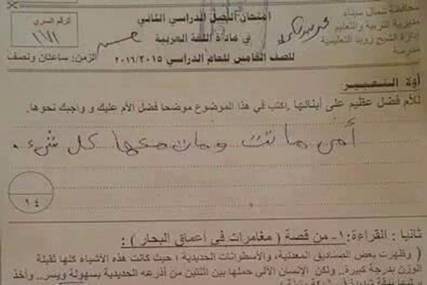 محافظة شمال سيناء
مديرية التربية والتعليم
إدارة الشيخ زويد التعليمية
مدرسة
امتحان الفصل الدراسي الثاني
في مادة اللغة العربية
للصف الخامس للعام الدراسي ٢٠١٦/٢٠١٥
الرقم السري
الزمن: ساعتان ونصف
أولا: التعبير
للأم فضل عظيم على أبنائها. اكتب في هذا الموضوع موضحا فضل الأم عليك و واجبك نحوها.
أمى ماتت ومات معها كل شىء .
١٤
ثانيا : القراءة: ١- من قصة ( مغامرات في أعماق البحار ) :
( وظهرت بعض الصناديق المعدنية، والأسطوانات الحديدية ؛ حيث كانت هذه الأشياء كلها ثقيلة
الوزن بدرجة كبيرة.. ولكن الإنسان الآلي حملها بين اثنتين من أذرعه الحديدية بسهولة ويسر.. وأخذ